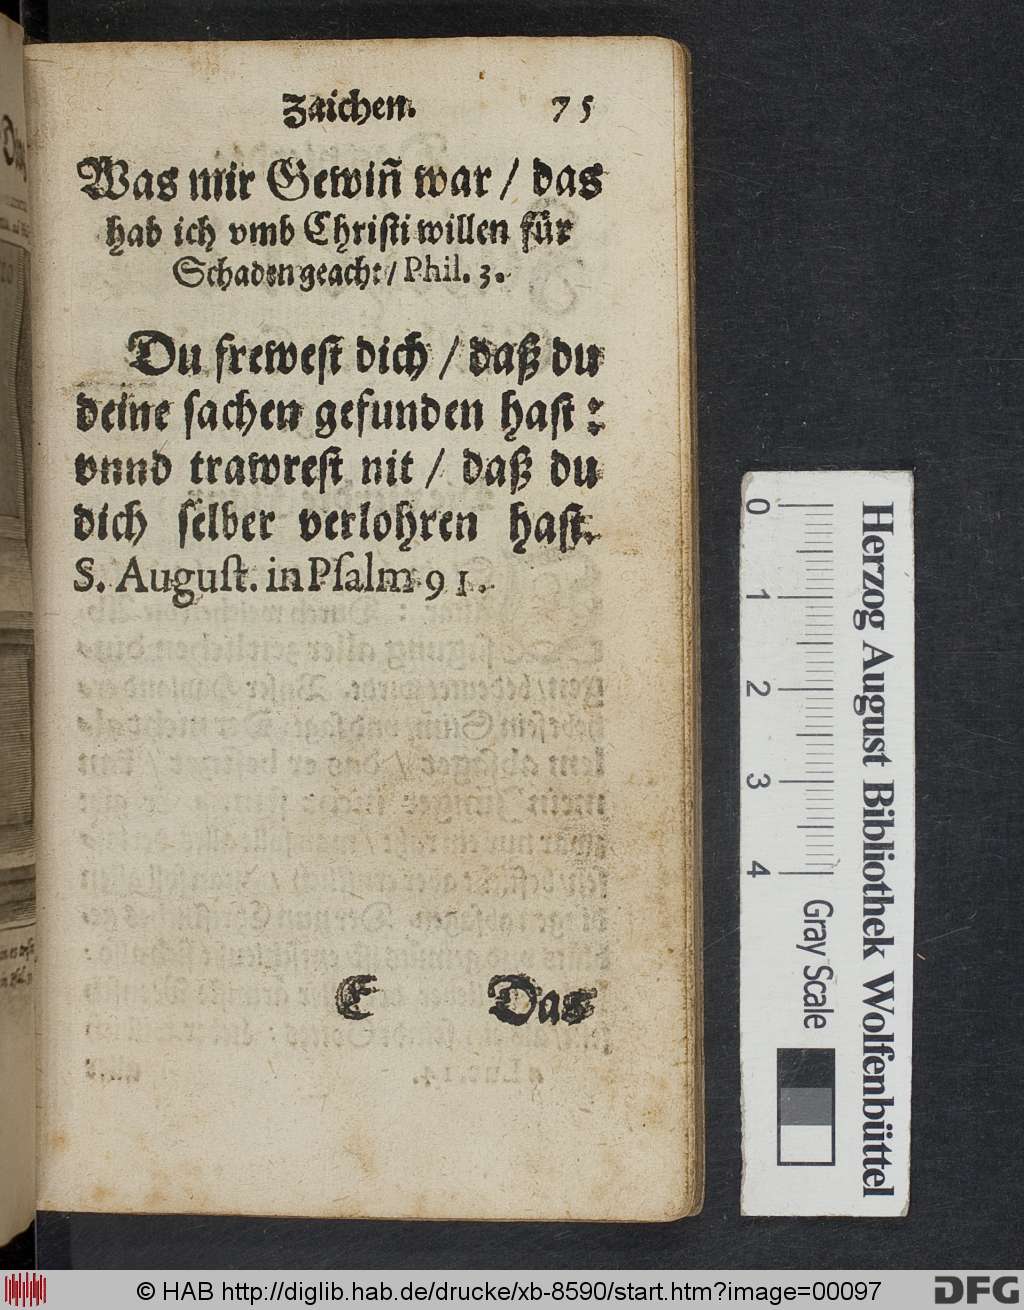 Zaichen. 75
Was mir Gewiñ war / das
hab ich vmb Christi willen für
Schaden geacht / Phil. 3.
Du frewest dich / daß du
deine sachen gefunden hast :
vnnd trawrest nit / daß du
dich selber verlohren hast.
S. August. in Psalm 91.
E Das
0 1 2 3 4 Gray Scale
Herzog August Bibliothek Wolfenbüttel
© HAB http://diglib.hab.de/drucke/xb-8590/start.htm?image=00097
DFG